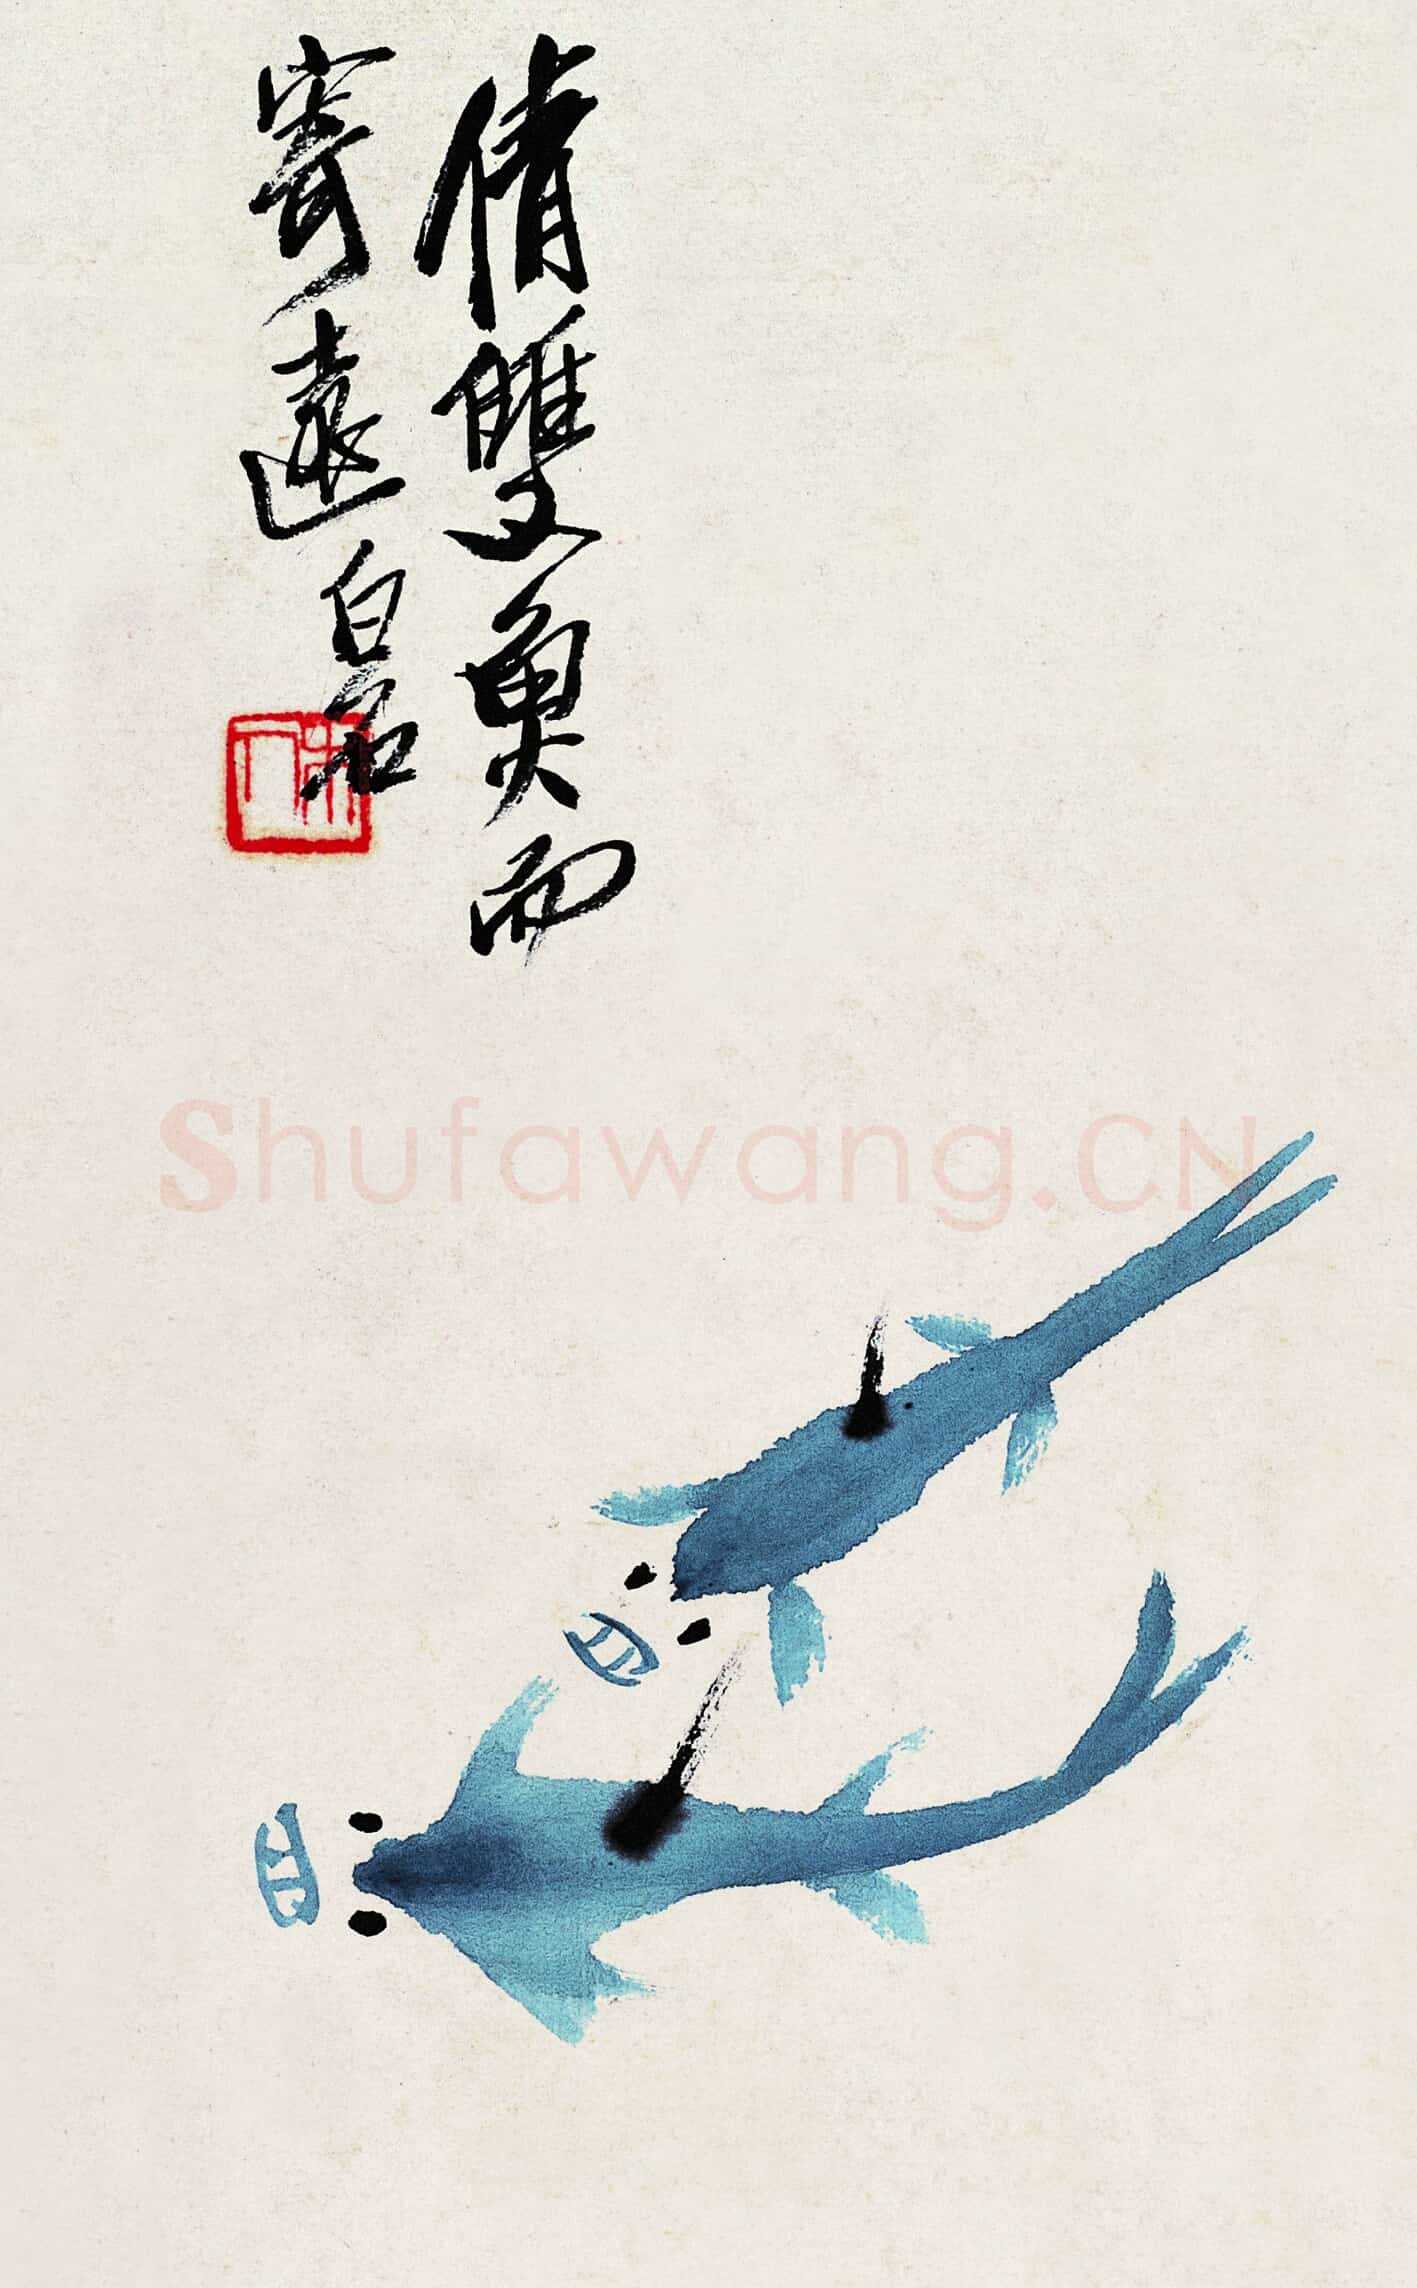 倩雙魚而
寄遠白石
Shufawang.CN